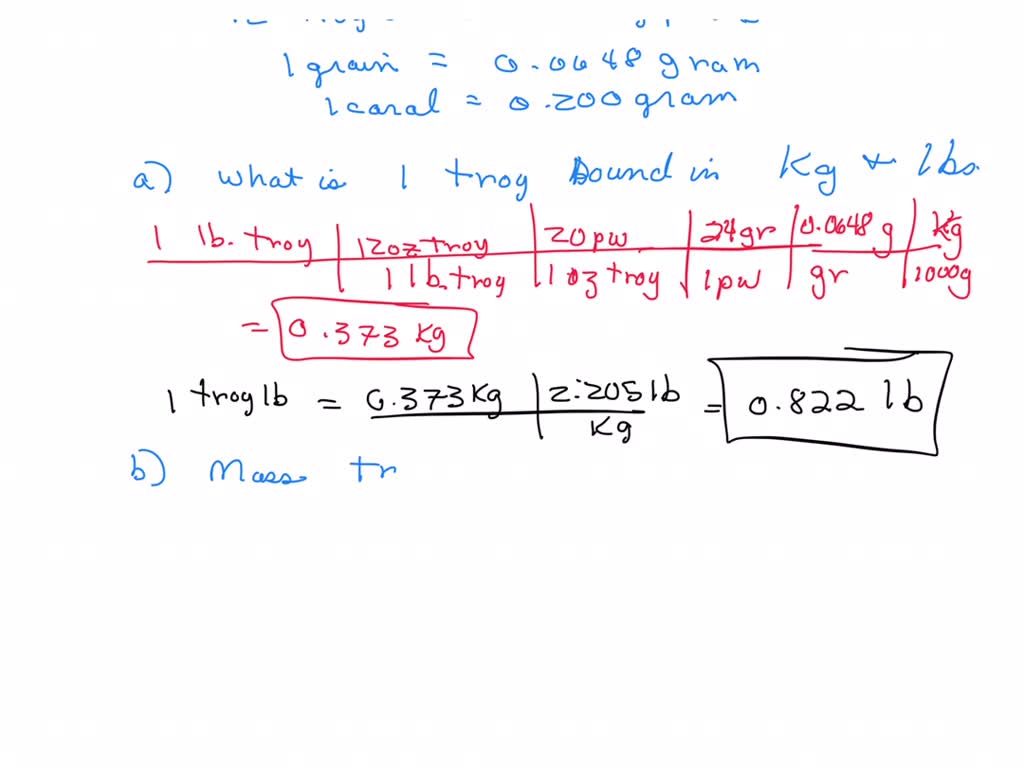 1 grain = 0.0648 gram
1 caral = 0.200 gram
a) what is 1 troy Dound in Kg & lbs.
1 lb. troy | 12oz troy | 20 pw | 24 gr | 0.0648 g | Kg
1 lb. troy | 1 oz troy | 1 pw | gr | 1000g
= 0.373 kg
1 troy lb = 0.373 Kg | 2.205 lb = 0.822 lb
Kg
b) Mass tr